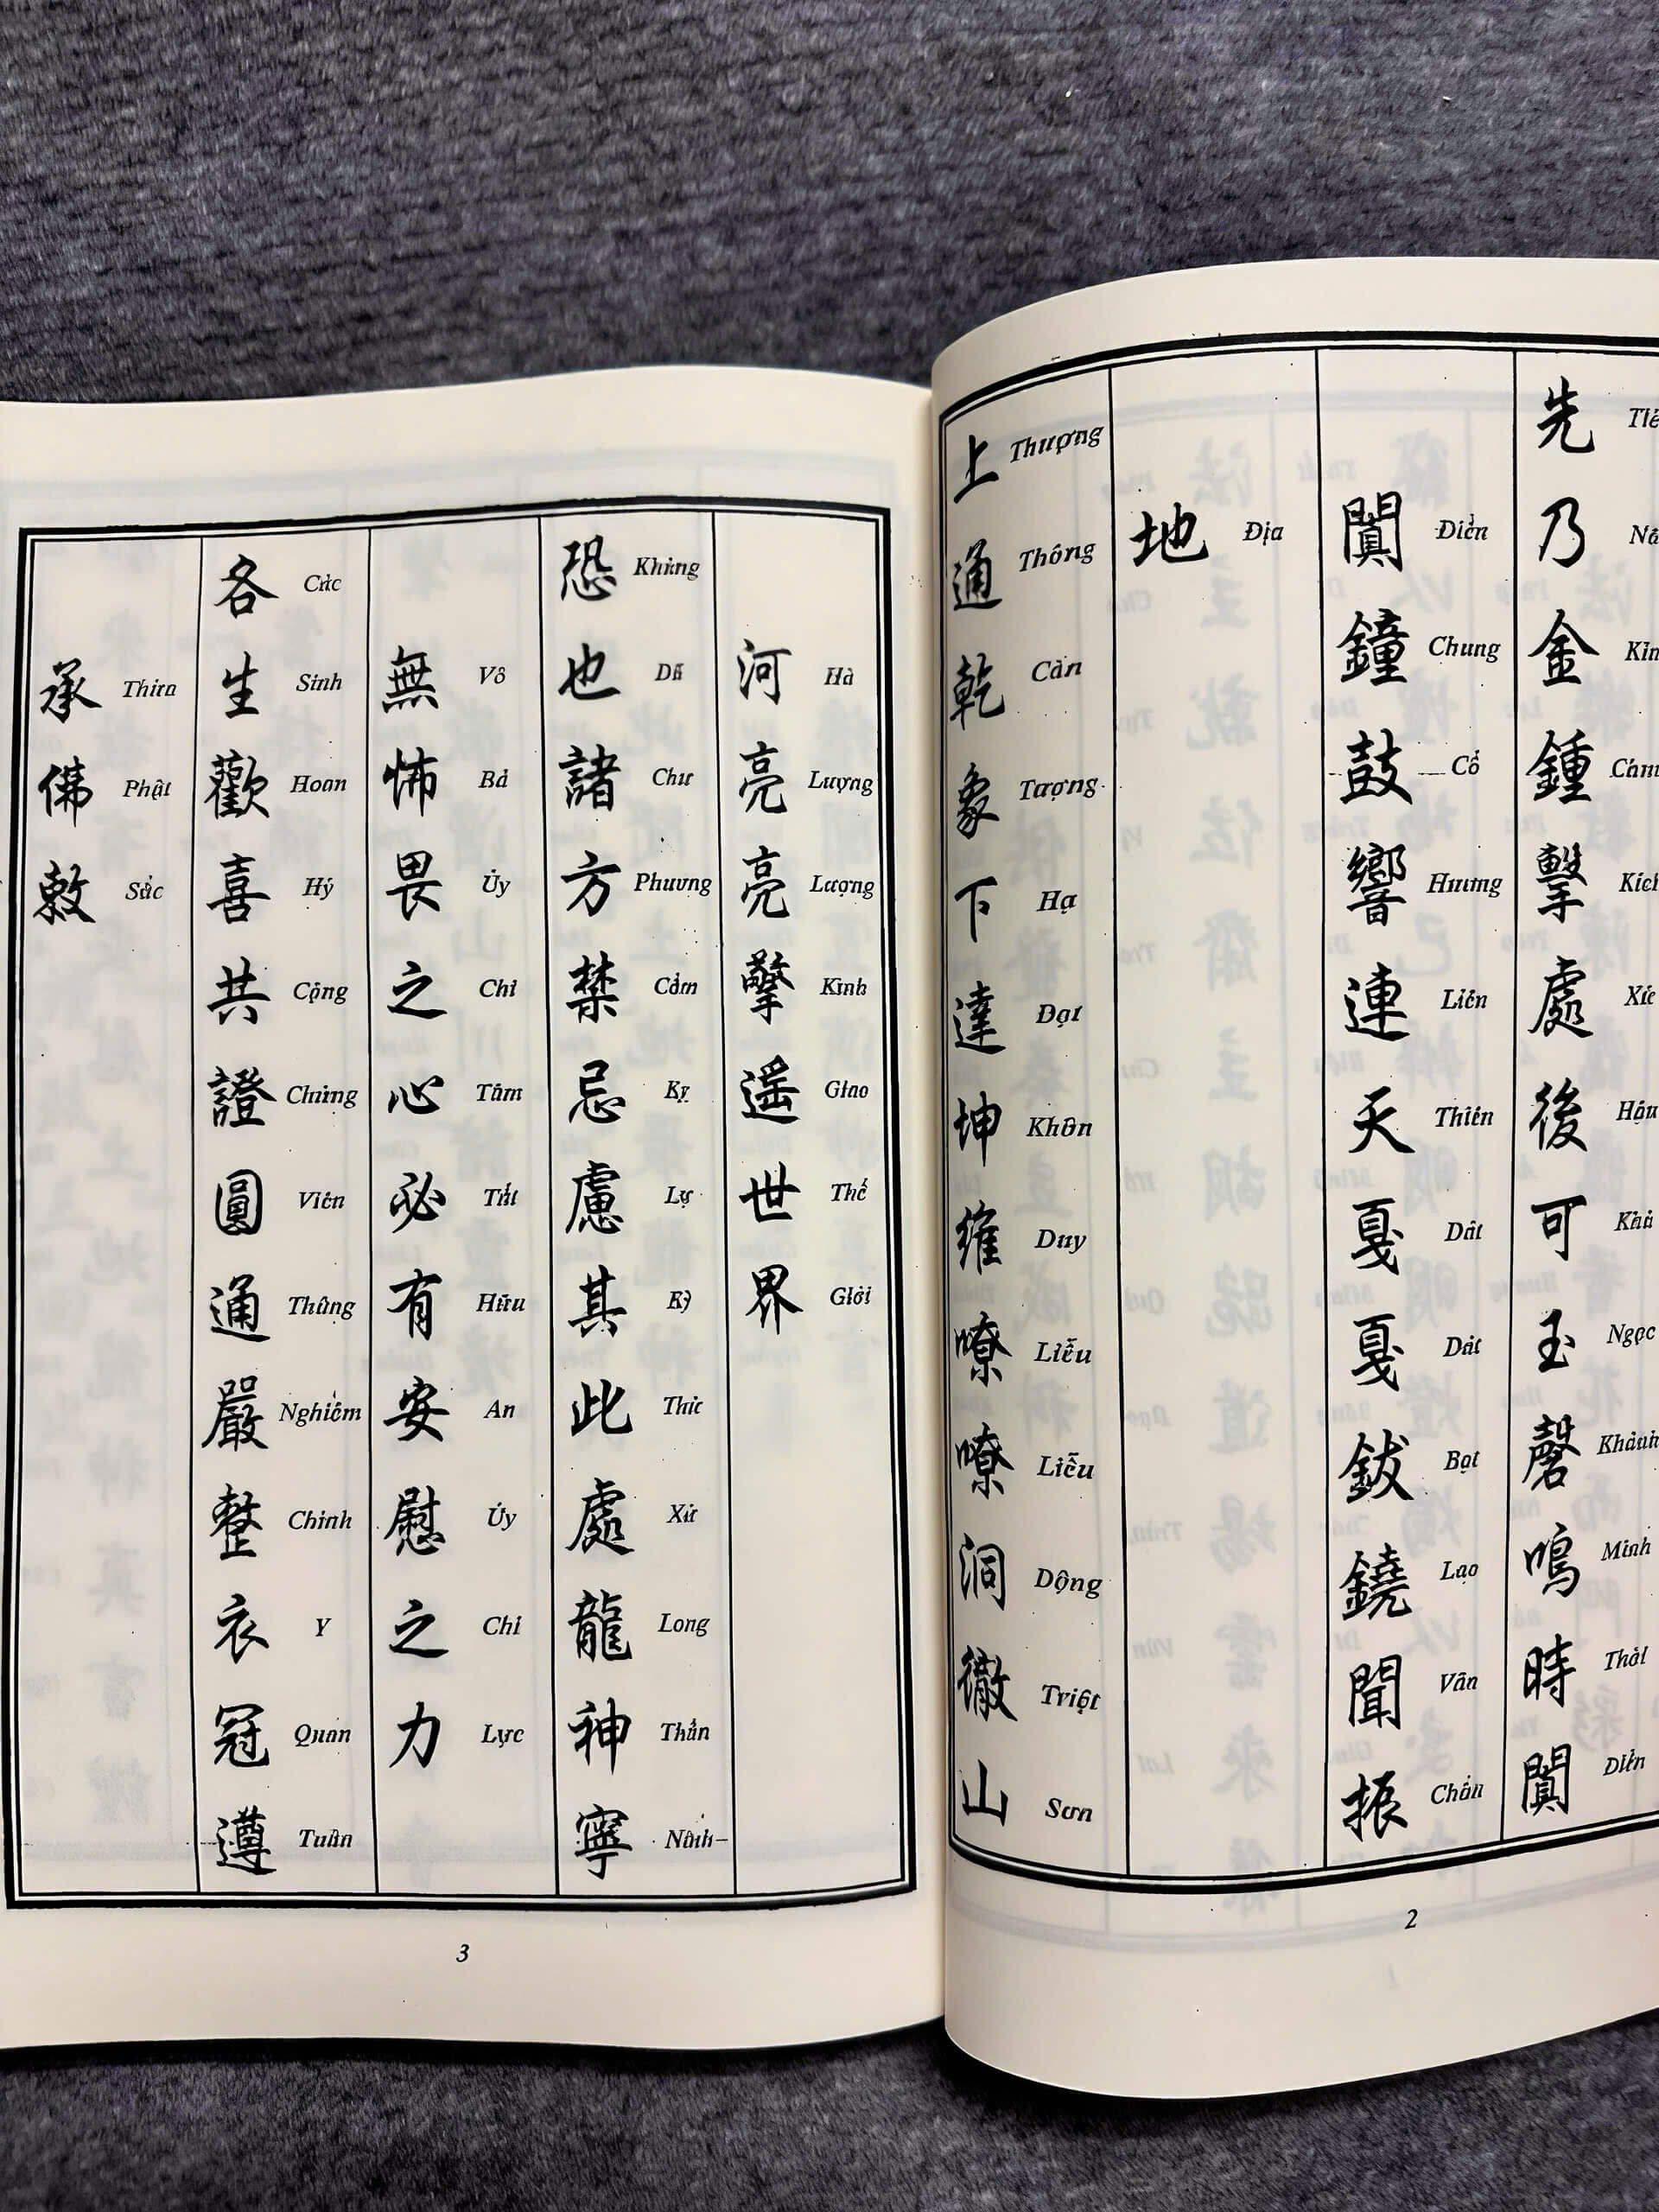 先乃金鍾擊處後可玉磬鳴時闐
Hậu Khả Ngọc Khánh Minh Thời Điền
闐鐘鼓響連天戛戛鈸鐃聞振
Điền Chung Cổ Hưởng Liên Thiên Dát Dát Bạt Lạo Văn Chấn
地
Địa
上通乾象下達坤維嘹嘹洞徹山
Thượng Thông Càn Tượng Hạ Đạt Khôn Duy Liễu Liễu Dộng Triệt Sơn
2
河亮亮擎遥世界
Hà Lượng Lượng Kình Giao Thế Giới
恐也諸方禁忌慮其此處龍神寧
Khủng Dã Chư Phương Cấm Kỵ Lự Kỳ Thử Xứ Long Thần Ninh
無怖畏之心必有安慰之力
Vô Bả Úy Chi Tâm Tất Hữu An Úy Chi Lực
各生歡喜共證圓通嚴整衣冠遵
Các Sinh Hoan Hỷ Cộng Chứng Viên Thông Nghiêm Chỉnh Y Quan Tuân
承佛敕
Thừa Phật Sắc
3